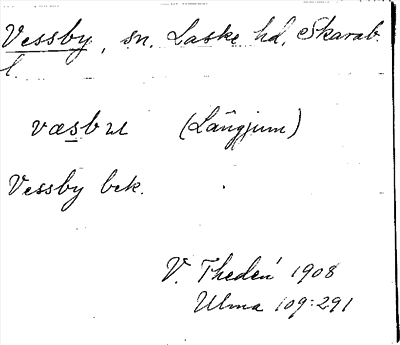 Vessby, sn. Laske hd, Skarab.
l.
væsbɯ (Långjum)
Vessby bek.
V. Thedén 1908
Ulma 109:291